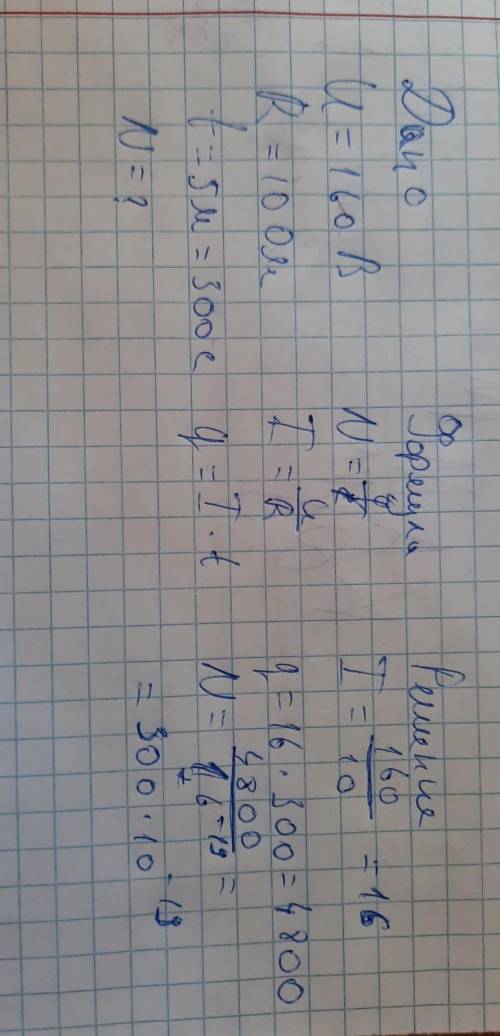 Дано
U = 160 В
R = 10 Ом
t = 5м = 300с
N = ?
Формула
N = q/e
I = U/R
q = I · t
Решение
I = 160/10 = 16
q = 16 · 300 = 4800
N = 4800/1,6 -19 =
= 300 · 10 -19